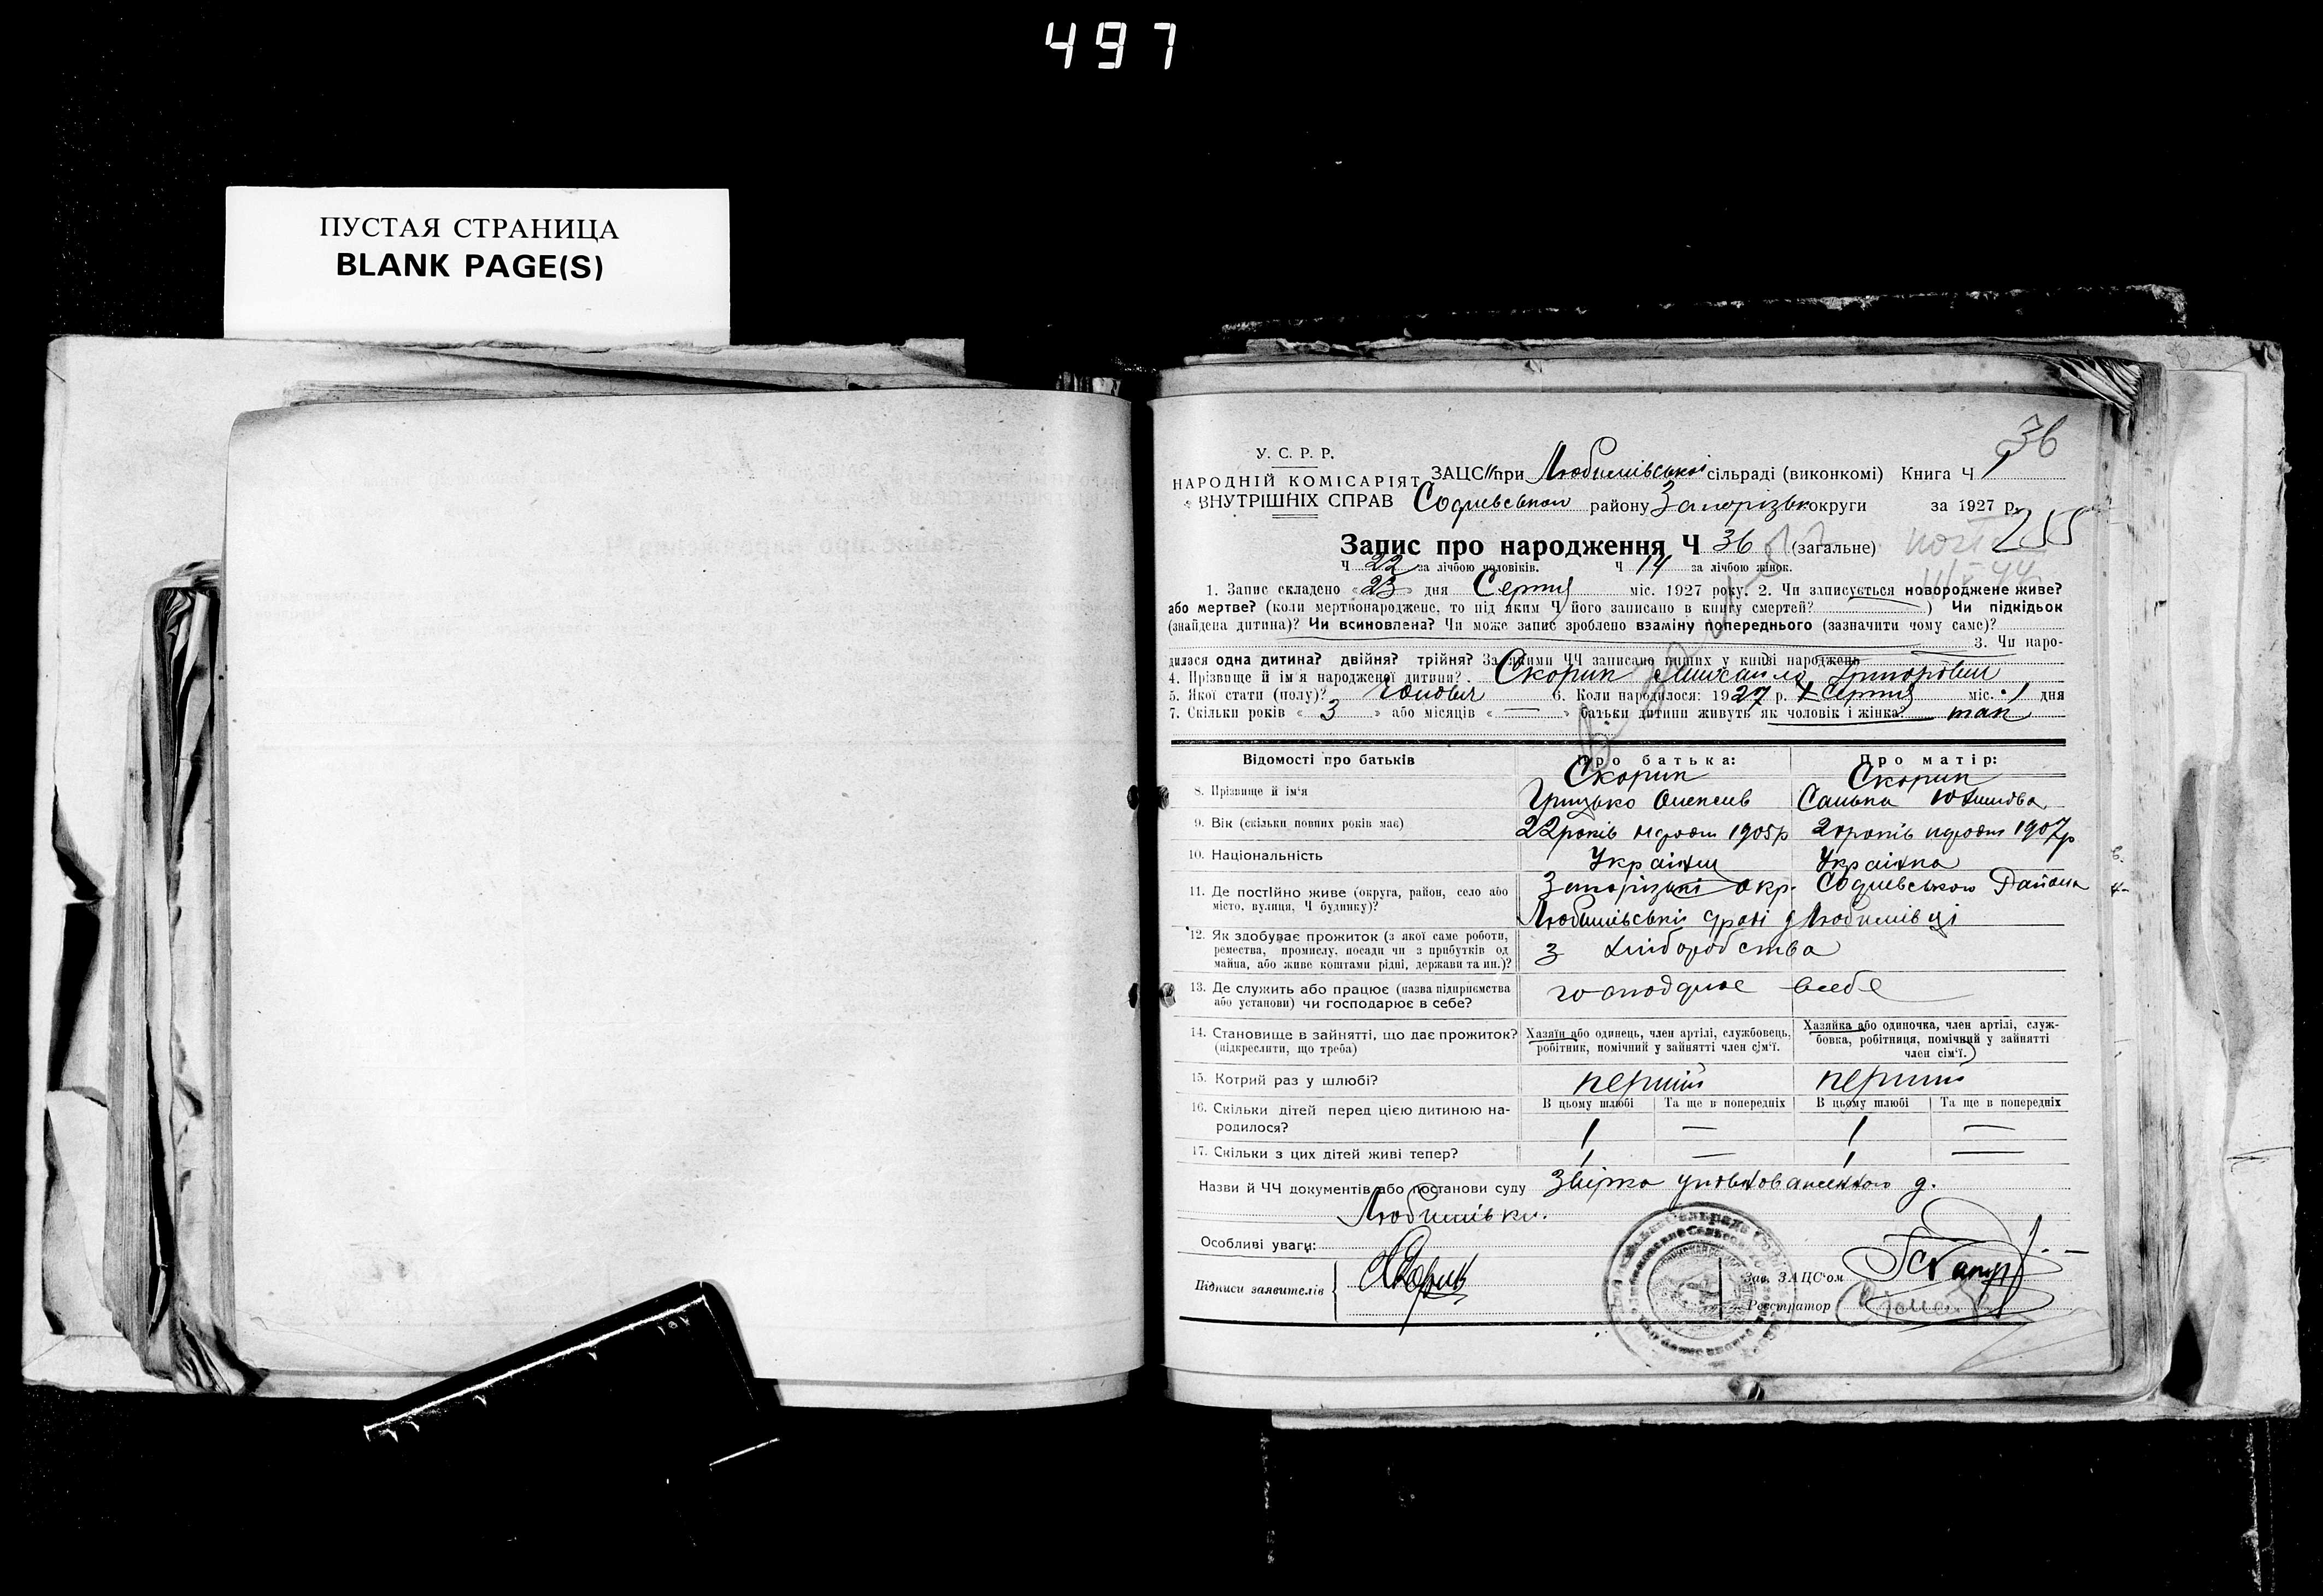 497
ПУСТАЯ СТРАНИЦА
BLANK PAGE(S)
36
У. С. Р. Р.
НАРОДНІЙ КОМІСАРІЯТ
ВНУТРІШНІХ СПРАВ
ЗАЦС при Любимівської сільраді (виконкомі) Книга Ч 1
району Запорізьк округи за 1927 р.
255
Запис про народження Ч 36 (загальне)
Ч 22 за лічбою чоловіків. Ч 14 за лічбою жінок.
1. Запис складено «23» дня Серпня міс. 1927 року. 2. Чи записується новороджене живе?
або мертве? (коли мертвонароджене, то під яким Ч його записано в книгу смертей? —) Чи підкідьок
(знайдена дитина)? Чи всиновлена? Чи може запис зроблено взаміну попереднього (зазначити чому саме)?
3. Чи наро-
дилася одна дитина? двійня? трійня? За якими ЧЧ записано инших у книзі народжень
4. Прізвище й ім'я народженої дитини? Скорик Михайло Григорович
5. Якої стати (полу)? чоловіч 6. Коли народилося: 1927 р. Серпня міс. 1 дня
7. Скільки років «3» або місяців «—» батьки дитини живуть як чоловік і жінка? так
Відомості про батьків
Про батька:
Про матір:
8. Прізвище й ім'я
Скорик
Грицько Олексів
Скорик
Санька Юхимова
9. Вік (скільки повних років має)
22 років народж 1905 р
20 років народж 1907 р
10. Національність
Українц
Українка
11. Де постійно живе (округа, район, село або
місто, вулиця, Ч будинку)?
Запорізькі окр. Района
Любимівські с/раді Любимівці
12. Як здобуває прожиток (з якої саме роботи,
ремества, промислу, посади чи з прибутків од
майна, або живе коштами рідні, держави та ин.)?
з хліборобства
13. Де служить або працює (назва підприємства
або установи) чи господарює в себе?
господарює всебе
14. Становище в зайнятті, що дає прожиток?
(підкреслити, що треба)
Хазяїн або одинець, член артілі, службовець,
робітник, помічний у зайнятті член сім'ї.
Хазяйка або одиночка, член артілі, служ-
бовка, робітниця, помічний у зайнятті
член сім'ї.
15. Котрий раз у шлюбі?
перший
перший
16. Скільки дітей перед цією дитиною на-
родилося?
В цьому шлюбі
Та ще в попередніх
В цьому шлюбі
Та ще в попередніх
1 — 1 —
17. Скільки з цих дітей живі тепер?
1 — 1 —
Назви й ЧЧ документів або постанови суду Звірка уповноваженного д.
Любимівки.
Особливі уваги:
Підписи заявителів
Скорик
Зав. ЗАЦС'ом
Реєстратор